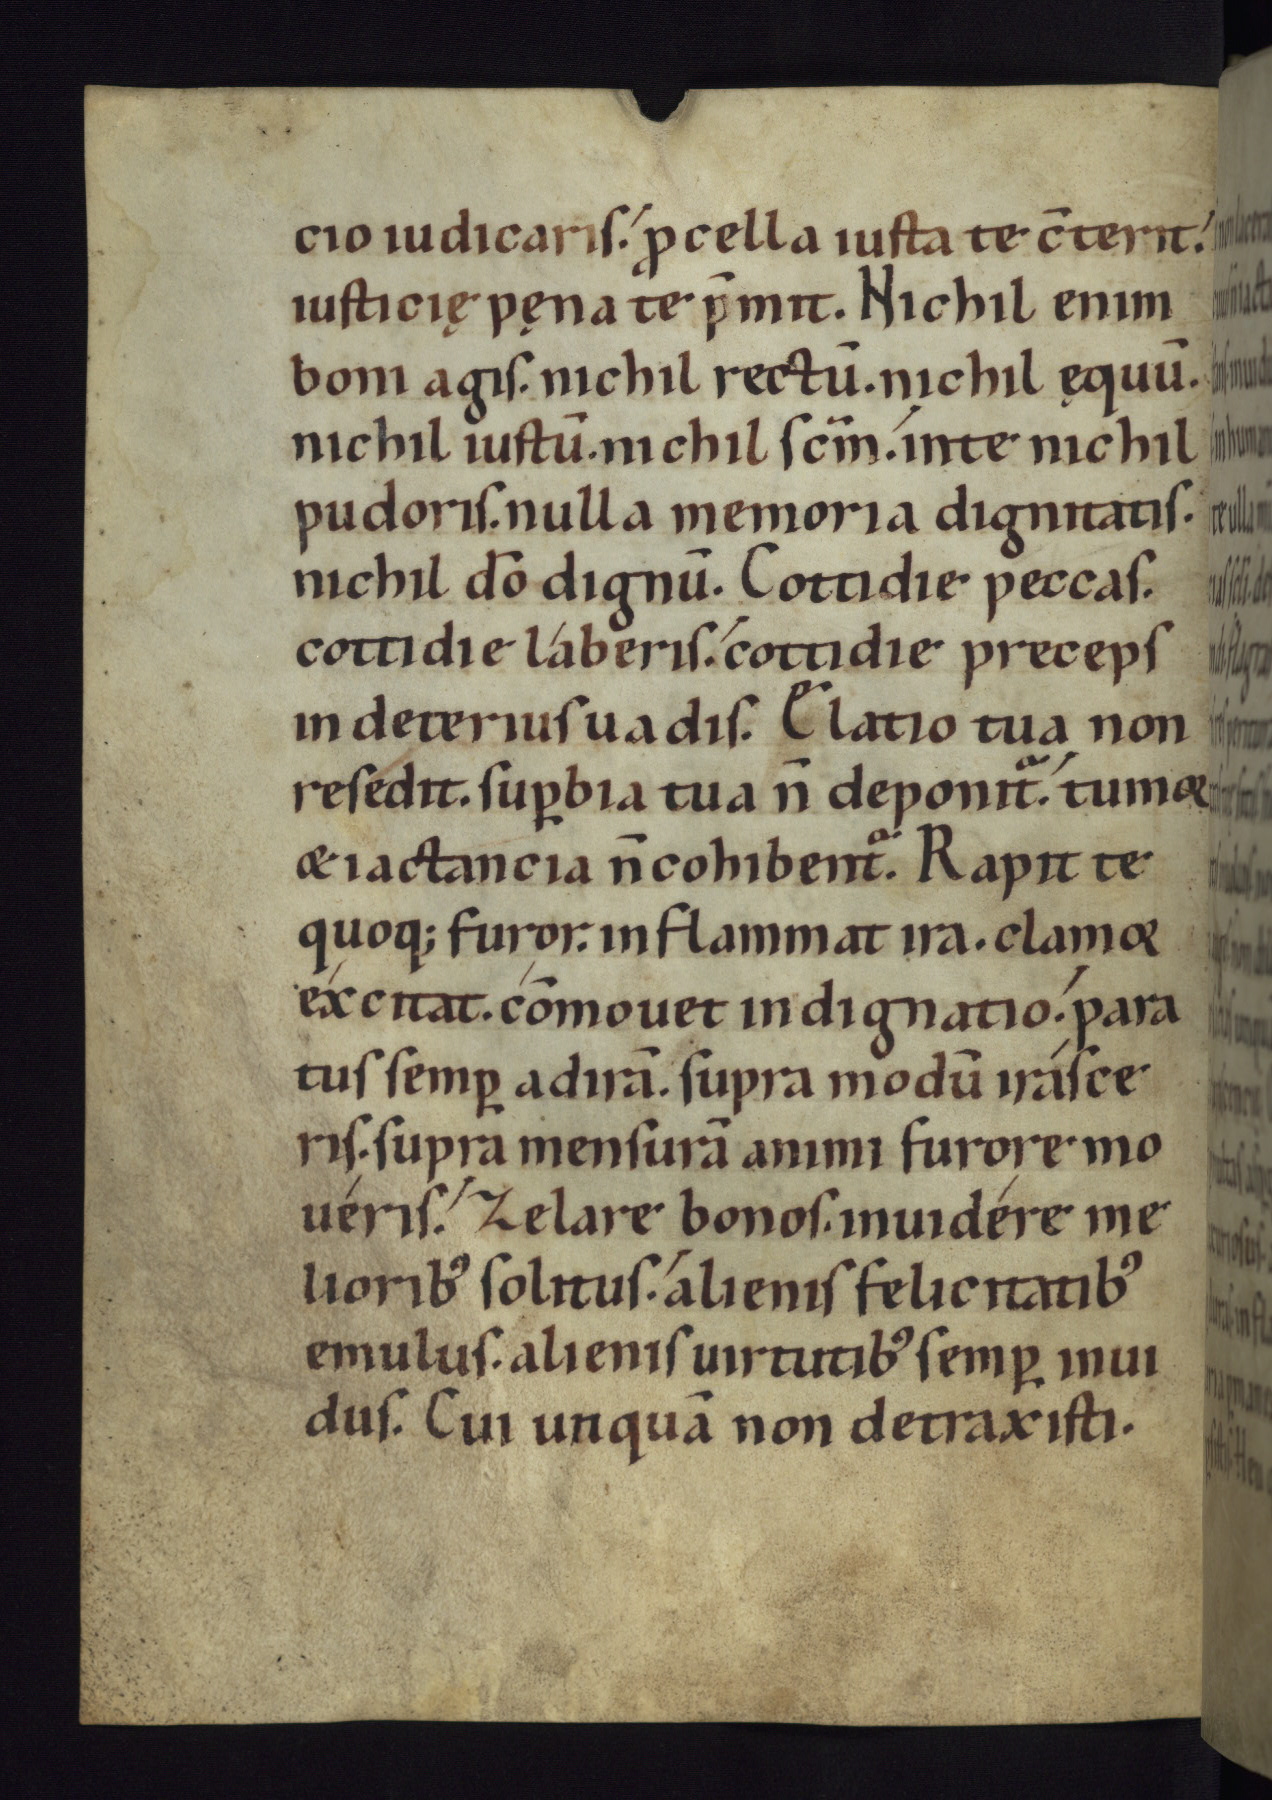 cio iudicaris. ꝓcella iusta te c̄terit.
iusticię pęna te p̄mit. Nichil enim
boni agis. nichil rectū. nichil ęquū.
nichil iustū. nichil sc̄m. inte nichil
pudoris. nulla memoria dignitatis.
nichil dō dignū. Cottidie peccas.
cottidie láberis. cottidie preceps
in deterius uadis. Elatio tua non
resedit. suꝑbia tua n̄ deponit᷑. tum&
& iactancia n̄ cohibent᷑. Rapit te
quoq; furor. inflammat ira. clam&
éxcitat. cōmouet indignatio. para
tus semꝑ ad irā. supra modū irásce
ris. supra mensurā animi furore mo
uéris. Zelare bonos. inuidére me
liorib᷒ solitus. alienis felicitatib᷒
emulus. alienis uirtutib᷒ semꝑ inui
dus. Cui unquā non detraxisti.